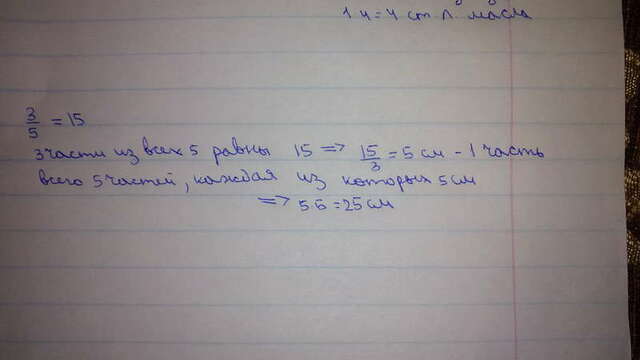 1 ч = 4 ст. л. масла
3/5 = 15
3 части из всех 5 равны 15 => 15/3 = 5 см - 1 часть
всего 5 частей, каждая из которых 5 см
=> 5·5 = 25 см